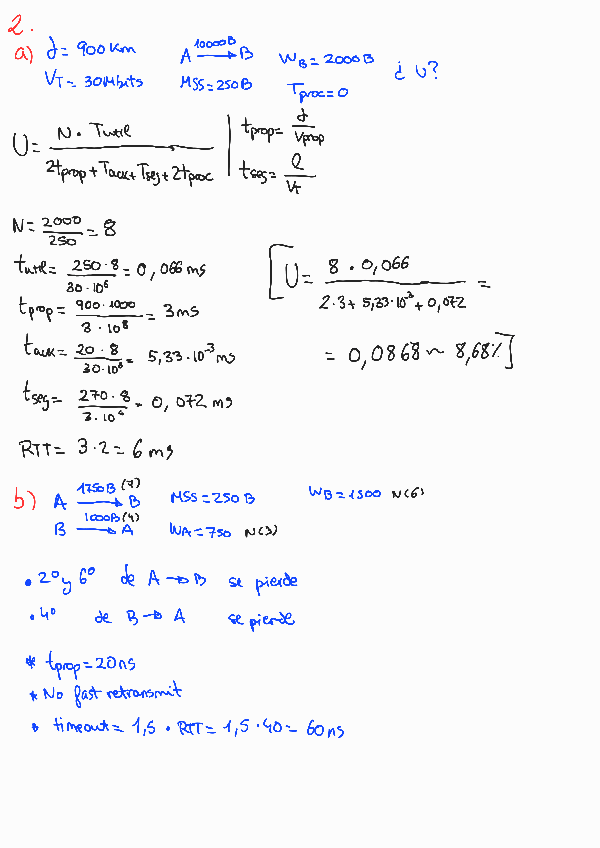 2.
a) d = 900 Km A 10000B → B W_B = 2000B ¿U?
V_T = 30Mbits MSS = 250B T_proc = 0
U = N · T_util / 2t_prop + T_ack + T_seg + 2t_proc
t_prop = d / V_prop
t_seg = Q / V_T
N = 2000 / 250 = 8
t_util = 250 · 8 / 30 · 10^6 = 0,066 ms
t_prop = 900 · 1000 / 3 · 10^8 = 3ms
t_ack = 20 · 8 / 30 · 10^6 = 5,33 · 10^-3 ms
t_seg = 270 · 8 / 3 · 10^6 = 0,072 ms
RTT = 3 · 2 = 6 ms
[U = 8 · 0,066 / 2·3 + 5,33·10^-3 + 0,072 =
= 0,0868 ~ 8,68%]
b) A 1750B (7) → B MSS = 250B W_B = 1500 N(6)
B 1000B (4) → A W_A = 750 N(3)
• 2º y 6º de A → B se pierde
• 4º de B → A se pierde
* t_prop = 20ns
* No fast retransmit
* timeout = 1,5 · RTT = 1,5 · 40 = 60ns